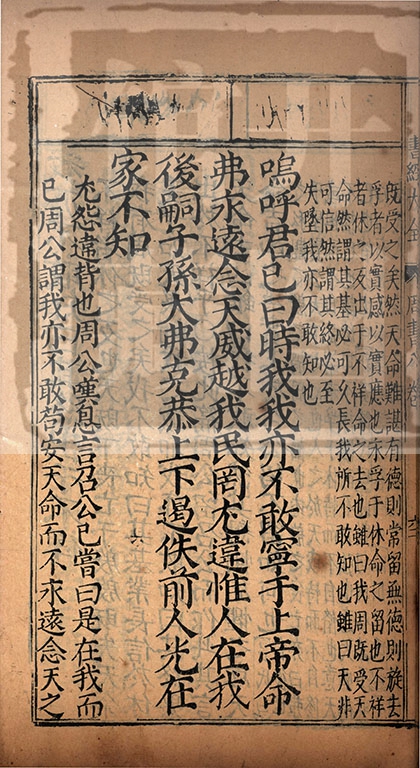 書經大全
既受之矣然天命難諶有德則常留無德則旋去
孚者以實感以實應也永孚于休命之留也不祥
者休之反出于不祥命之去也雖曰我周既受天
命然謂其基必可久長我所不敢知也雖曰天非
可信然謂其終必至
失墜我亦不敢知也
嗚呼君已曰時我我亦不敢寧于上帝命
弗永遠念天威越我民罔尤違惟人在我
後嗣子孫大弗克恭上下遏佚前人光在
家不知
尤怨違背也周公嘆息言召公已嘗曰是在我而
已周公謂我亦不敢苟安天命而不永遠念天之